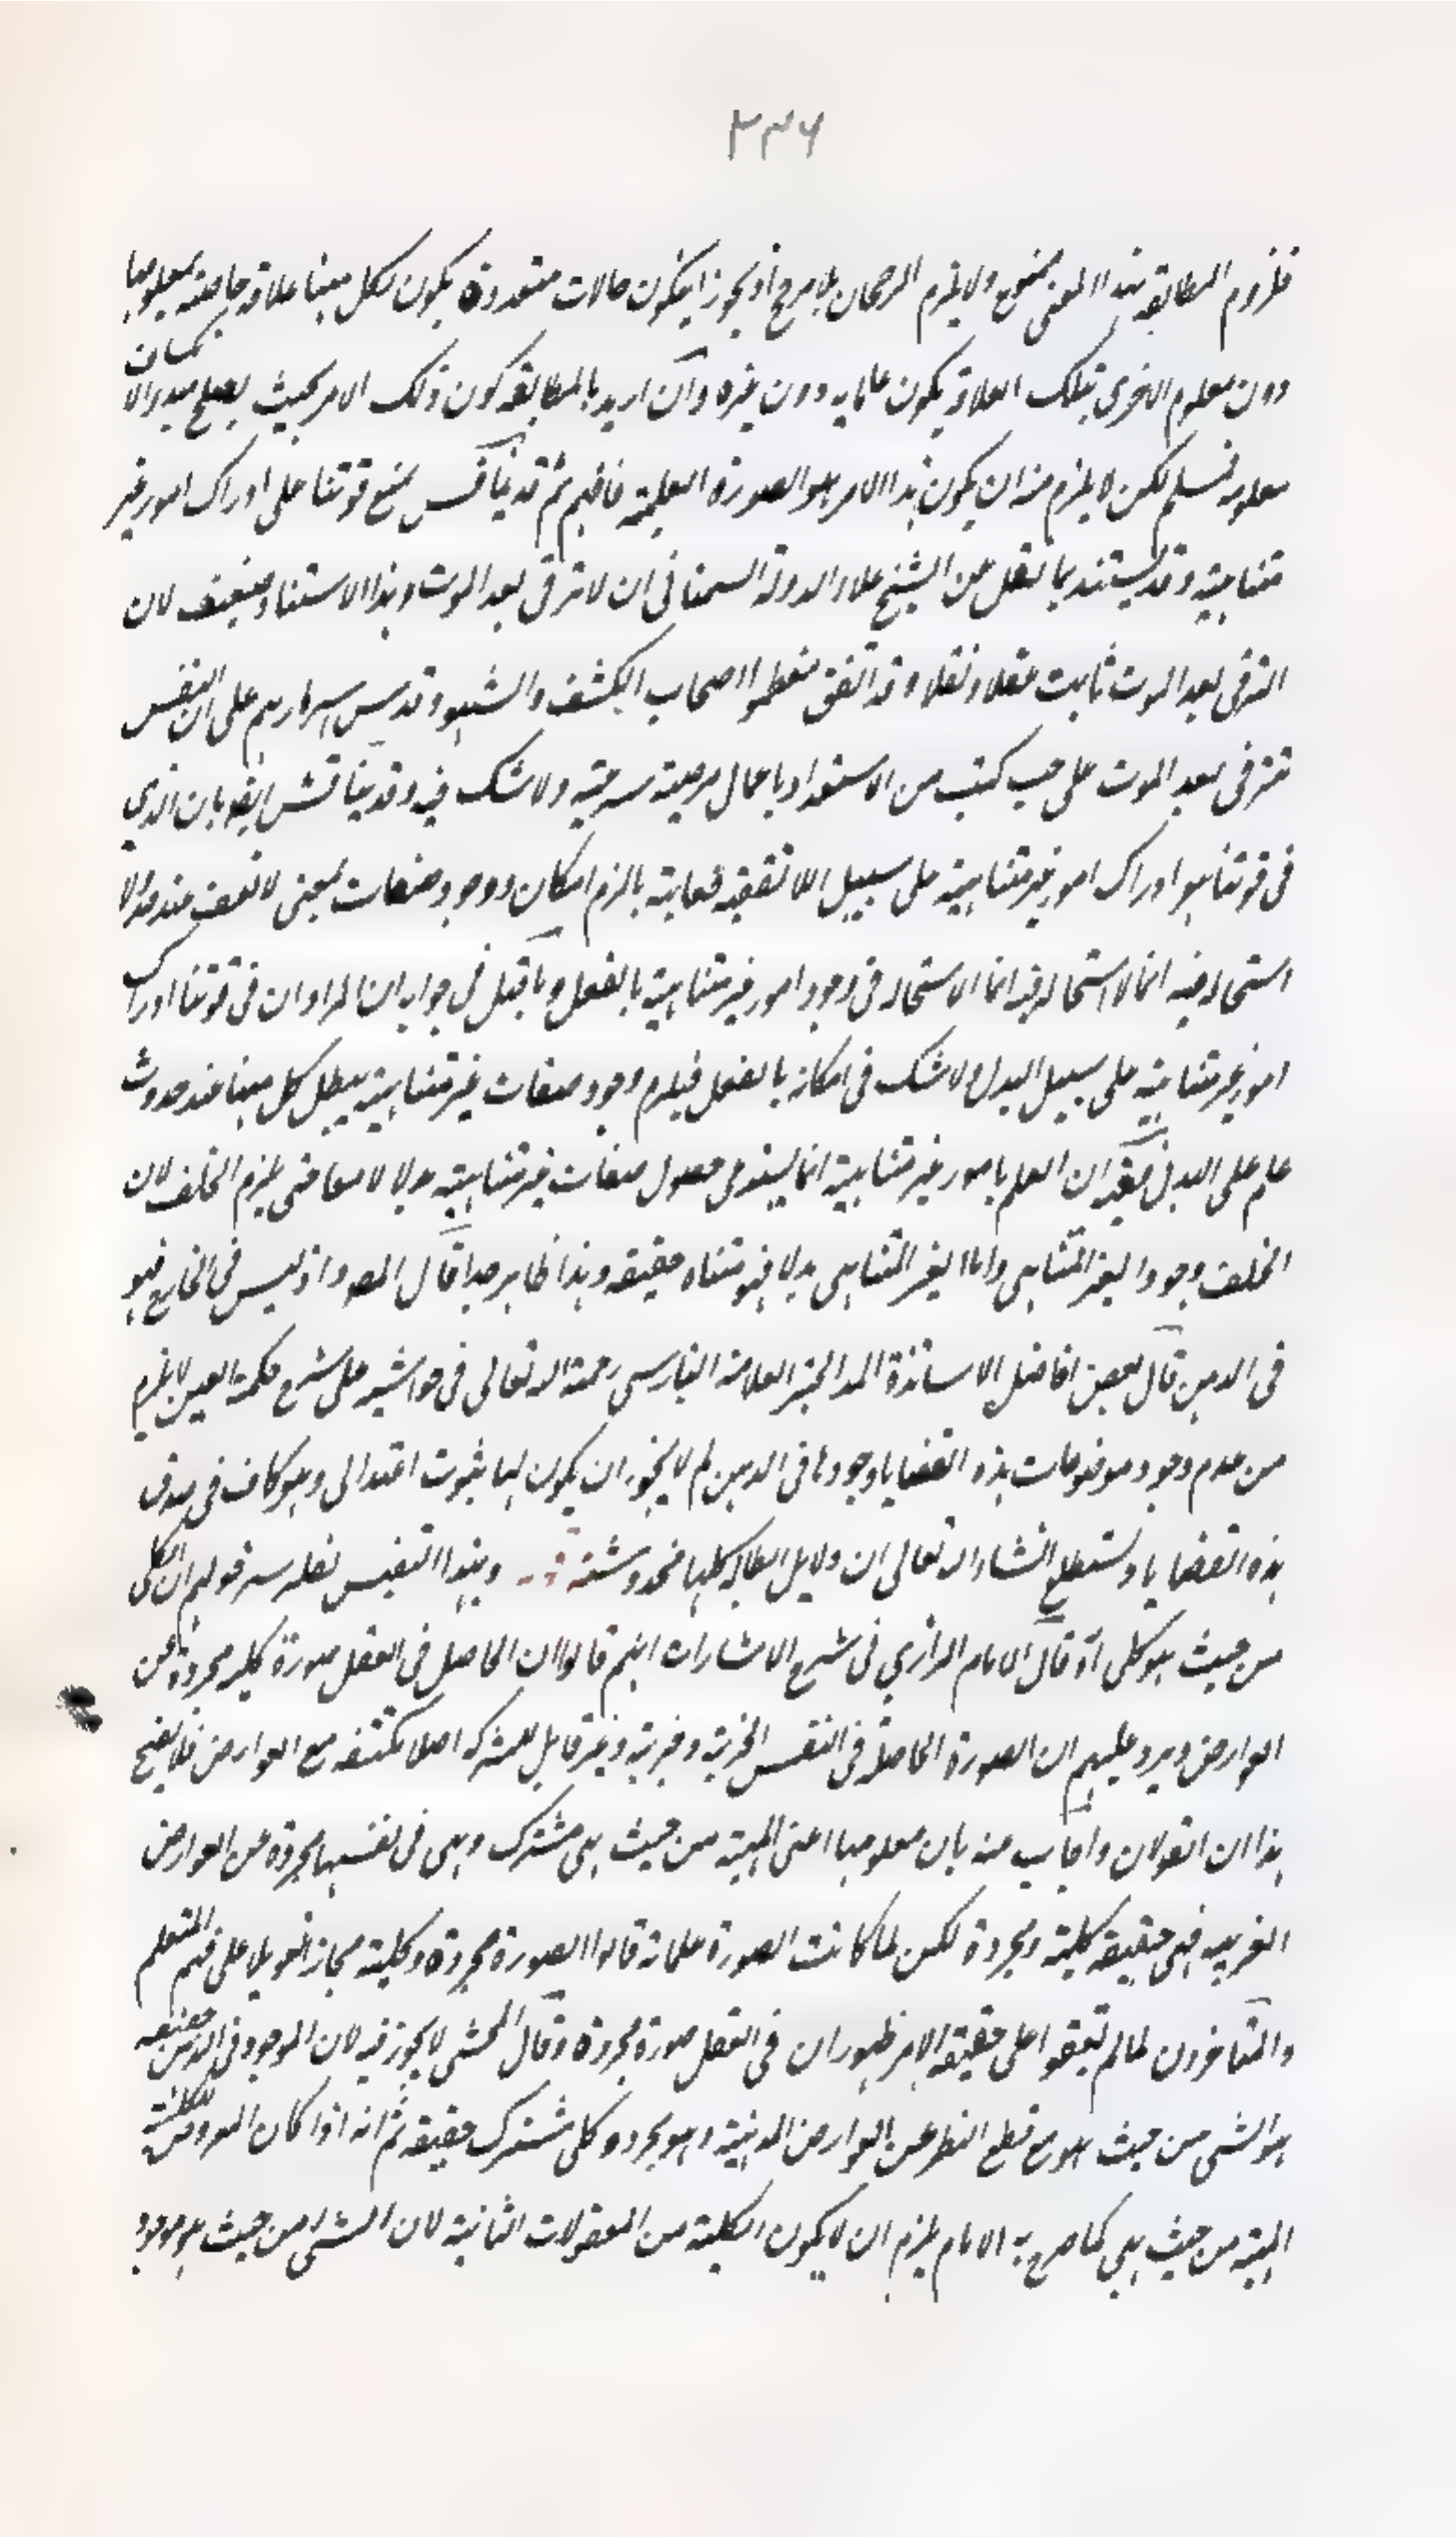 ٣٣٦
فلزوم المطابقة بهذا المعنى ممنوع ولا يلزم الرجحان بلا مرجح اذ يجوز ان يكون حالات متعددة يكون لكل منها علاقة خاصة بمعلومها
دون معلوم الاخرى بتلك العلاقة يكون علما به دون غيره وان اريد بالمطابقة كون ذلك الامر بحيث يصلح مبدء الانكشاف
معلومه فمسلم لكن لا يلزم منه ان يكون هذا الامر هو الصورة العلمية فافهم ثم قد يناقش بمنع قوتنا على ادراك امور غير
متناهية وقد يستند بما نقل عن الشيخ علاء الدولة السمنانى ان لا ترقى بعد الموت وهذا الاستناد ضعيف لان
الترقى بعد الموت ثابت عقلا ونقلا وقد اتفق معظموا اصحاب الكشف والشهود قدس اسرارهم على ان النفس
تترقى بعد الموت على حسب كسب من الاستعداد باعمال مرضية شرعية ولا شك فيه وقد يناقش ايضا بان الذي
فى قوتنا هو ادراك امور غير متناهية على سبيل اللاتقفية فغاية ما لزم امكان وجود صفات بمعنى لا تقف عند حد لا
استحالة فيه انما الاستحالة فى وجود امور غير متناهية بالفعل وما قيل فى جوابه ان المراد ان فى قوتنا ادراك
امور غير متناهية على سبيل البدل ولا شك فى امكانه بالفعل فيلزم وجود صفات غير متناهية يبطل كل منها عند حدوث
علم على البدل ففيه ان العلم بامور غير متناهية انما يستدعى حصول صفات غير متناهية بدلا لا معا حتى يلزم الخلف لان
الخلف وجود الغير المتناهى واما الغير المتناهى بدلا فهو متناه حقيقة وهذا ظاهر جدا قال المصـ واذ ليس فى الخارج فهو
فى الذهن قال بعض افاضل الاساتذة العلامة البنارسى رحمة الله تعالى فى حواشيه على شرح حكمة العين لا يلزم
من عدم وجود موضوعات هذه القضايا وجودها فى الذهن لم لا يجوز ان يكون لها ثبوت اعتدالى وهو كاف فى صدق
هذه القضايا وستطلع انشاء الله تعالى ان دلايل ابطاله كلها مخدوشة وبهذا التفيس نقله سر قولهم ان الكلى
من حيث هو كلى آه قال الامام الرازي فى شرح الاشارات انهم قالوا ان الحاصل فى العقل صورة كلية مجردة عن
العوارض ويرد عليهم ان الصورة الحاصلة فى النفس الجزئية وجزئية وغير قابل للشركة اصلا مكتنفة مع العوارض فلا يصح
هذا ان القولان واجاب عنه بان معلومها اعنى المهية من حيث هى مشترك وهى فى نفسها مجردة عن العوارض
الغريبه فهى حقيقة كلية ومجردة لكن لما كانت الصورة علما به قالوا الصورة مجردة وكلية مجازا على فهم المتعلم
والمتأخرون لما لم يقفوا على حقيقة الامر ظنوا ان فى العقل صورة مجردة وقال المحشى لا يجوز فيه لان الموجود فى الذهن حقيقة
هو الشى من حيث هو مع قطع النظر عن العوارض الذهنية وهو مجرد وكلى مشترك حقيقة ثم انه اذا كان المعروض للكلية
المهية من حيث هى كما صرح به الامام يلزم ان لا يكون الكلية من المعقولات الثانية لان الشى من حيث هو موجود